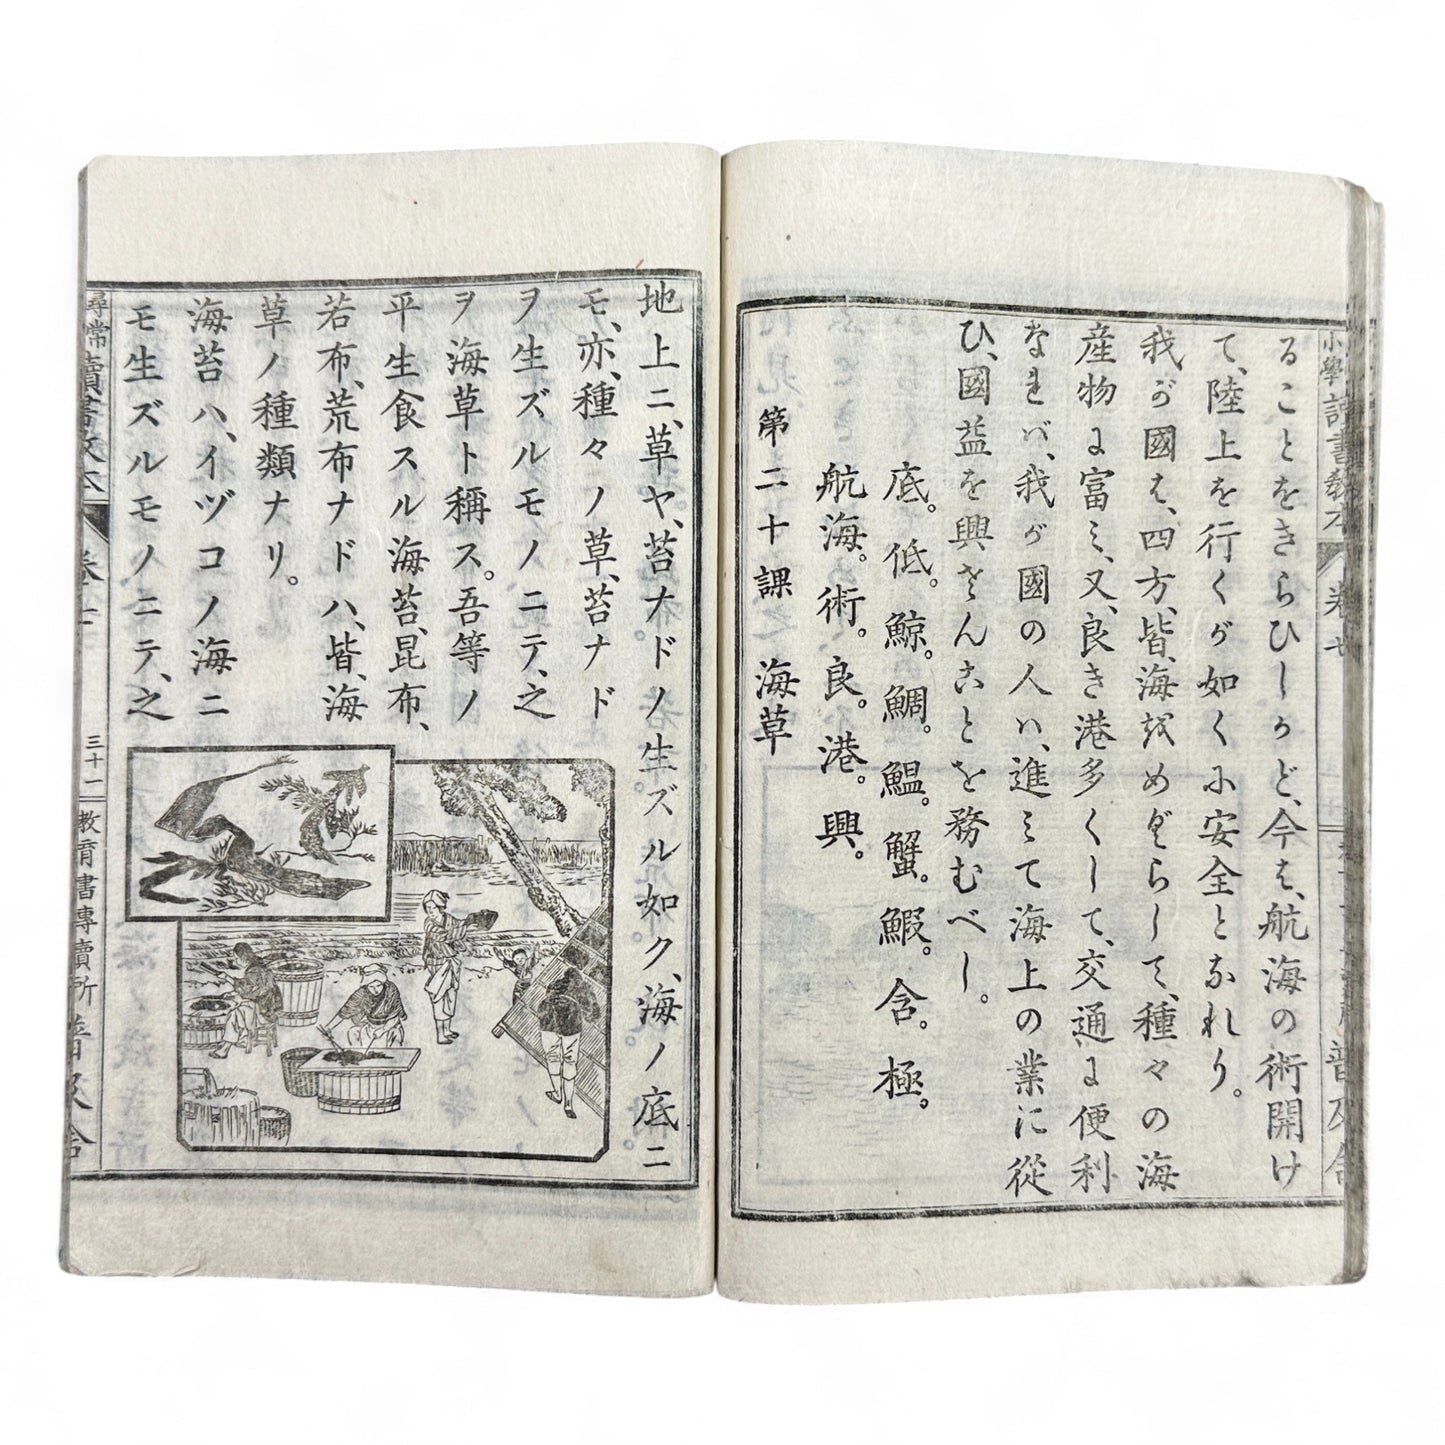 ることをきらひしかど、今は、航海の術開け
て、陸上を行くが如くに安全となれり。
我が國は、四方、皆、海にめぐらして、種々の海
産物に富み、又、良き港多くして、交通に便利
なれば、我が國の人は、進みて海上の業に從
ひ、國益を興さんことを務むべし。
底。低。鯨。鯛。鰛。蟹。鰕。含。極。
航海。術。良。港。興。
第二十課 海草
地上ニ、草ヤ、苔ナドノ生ズル如ク、海ノ底ニ
モ、亦、種々ノ草、苔ナド
ヲ生ズルモノニテ、之
ヲ海草ト稱ス。吾等ノ
平生食スル海苔、昆布、
若布、荒布ナドハ、皆、海
草ノ種類ナリ。
海苔ハ、イヅコノ海ニ
モ生ズルモノニテ、之
尋常 讀書教本 卷七 三十一 教育書專賣所 普及舍